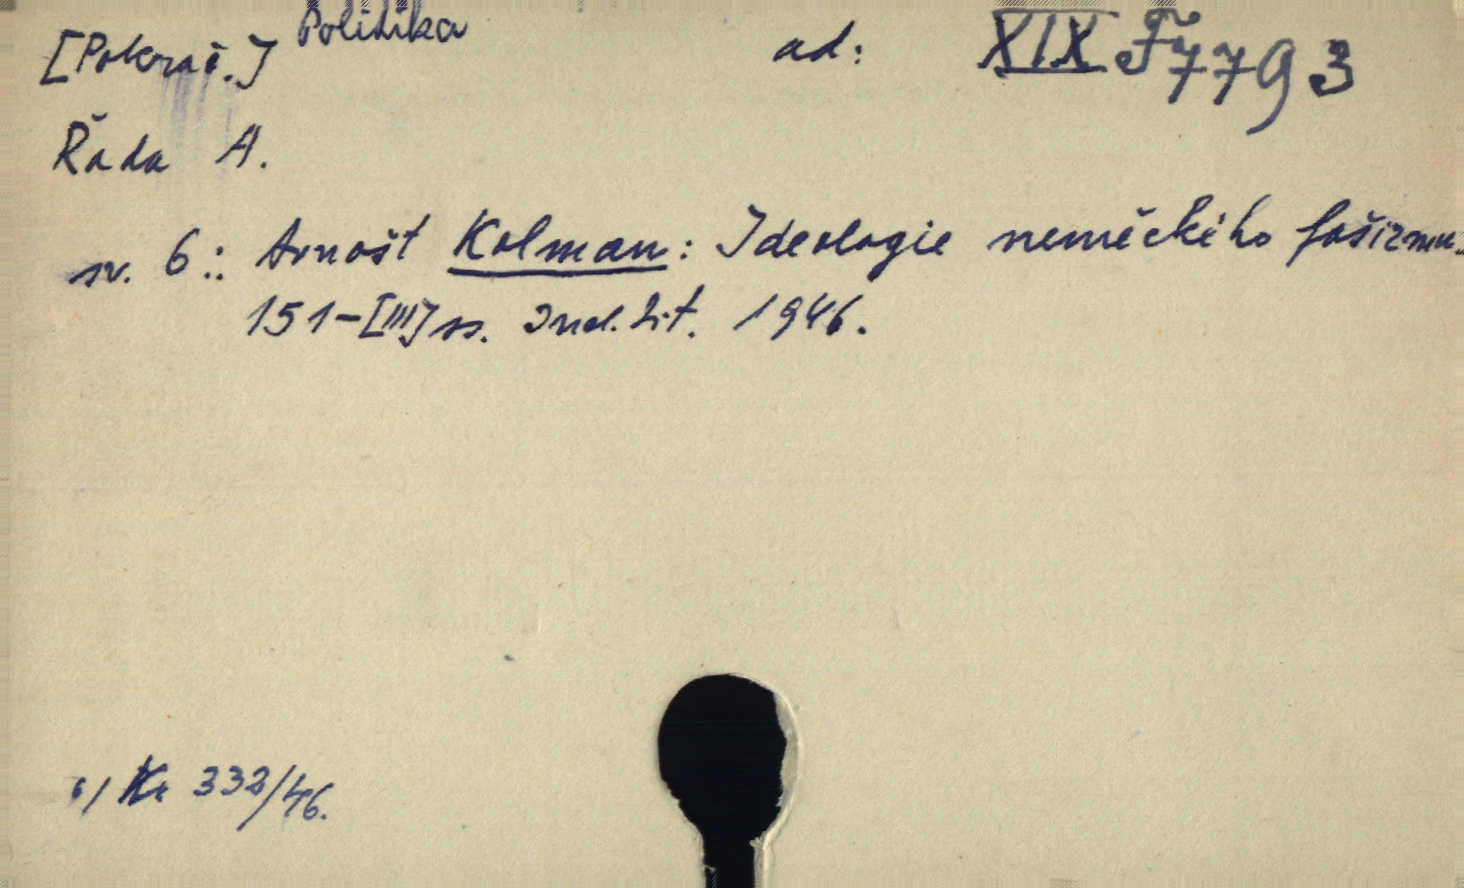 [Pokrač.] Politika ad: XIX F 7793
Řada A.
sv. 6: Arnošt Kolman: Ideologie německého fašizmu.
151-[III] ss. Ind. Lit. 1946.
6/ Kr 332/46.